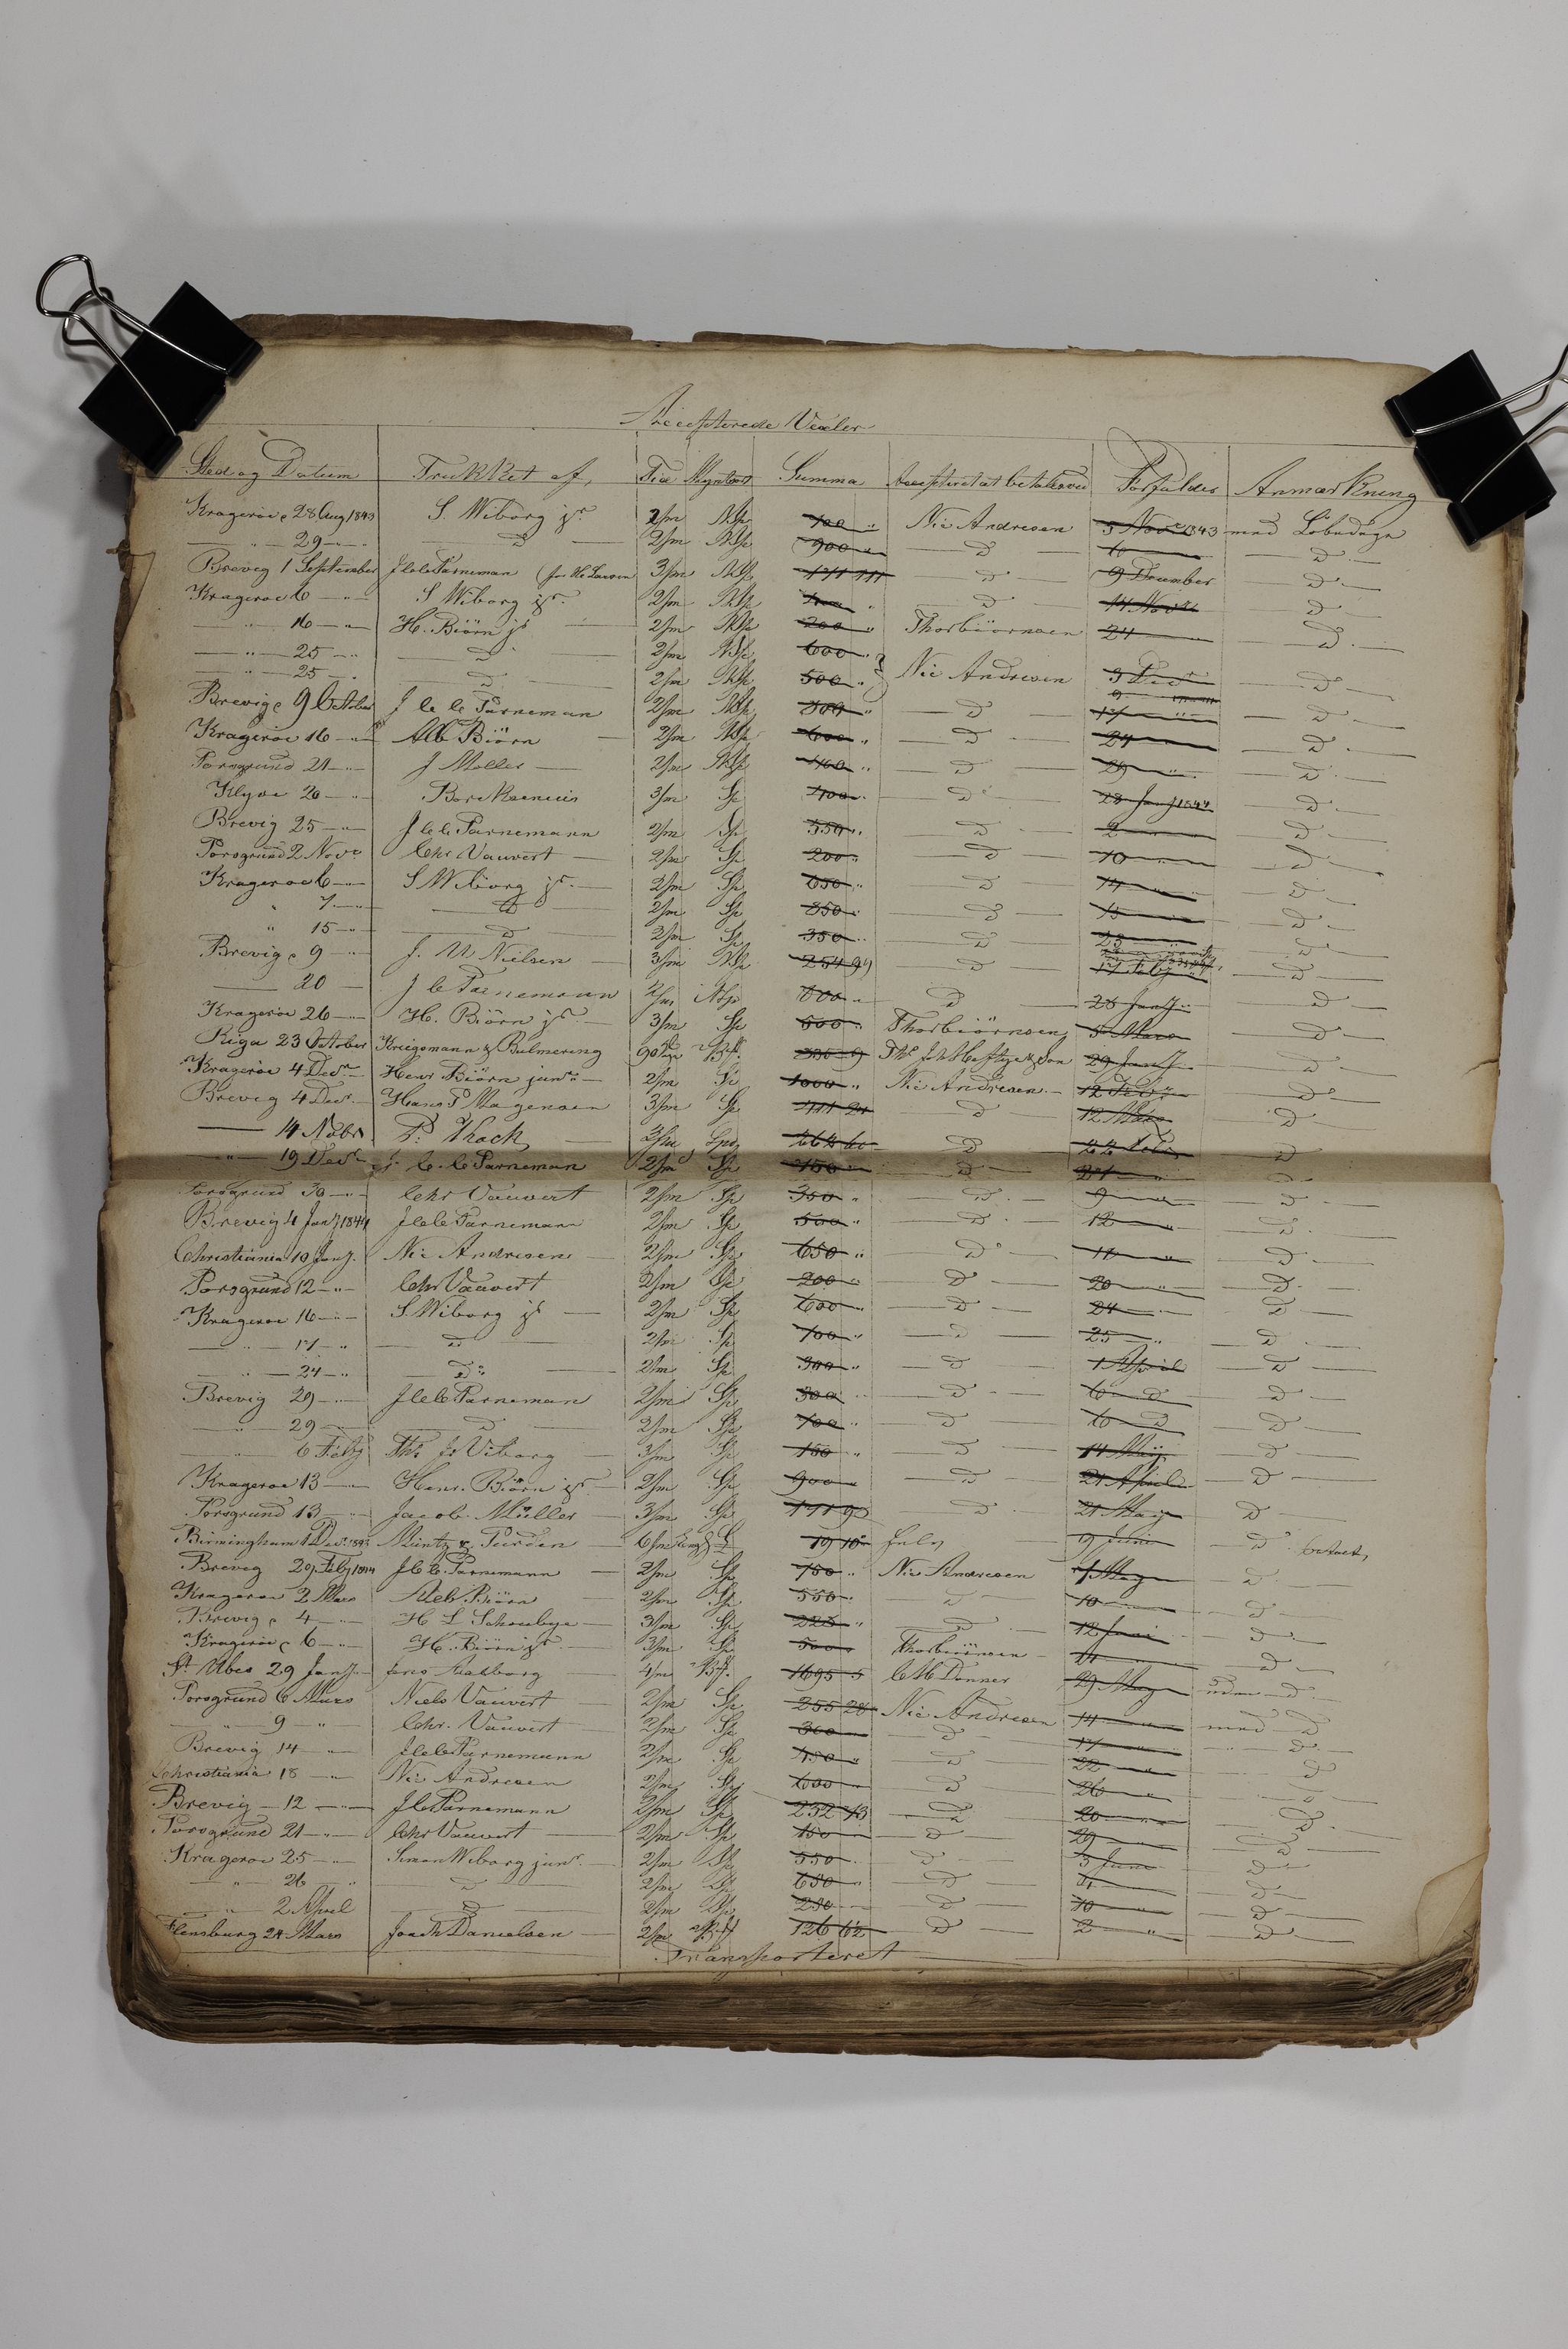 Accepterede Vexler
Sted og Datum Trukket af, Tid Myntsort Summa Accepteret at betales ved Forfalder Anmærkning
Kragerøe 28 Aug 1843 S. Wiborg jr. 2/m NSp 700 " Nic Andresen 5 Novr 1843 med Löbedage
" 29 " D 2/m NSp 900 " D 6 D
Brevig 1 September J C C Parnemann 3/m NSp D 9 December D
Kragerøe 6 " S Wiborg jr. 2/m NSp 400 " D 14 Novr D
" 16 " H. Biörn jr 2/m NSp 200 " Thorbiörnsen 24 D
" 25 " D 2/m NSp 600 "
" 25 " D 2/m NSp 500 " Nic Andresen 3 Decr D
Brevig 9 October J C C Parneman 2/m NSp 300 " D 17 " D
Kragerøe 16 " Alb Biörn 2/m NSp 600 " D 24 D
Porsgrund 21 " J Møller 2/m NSp " D 29 " D
Klyve 20 " 3/m Sp 400 " D 28 Jany 1844 D
Brevig 25 " J C C Parnemann 2/m Sp 550 " D 2 D
Porsgrund 2 Novr Chr Vauvert 2/m Sp 200 " D 10 " D
Kragerøe 6 " S Wiborg jr. 2/m Sp 650 " D 14 " D
" 7 " D 2/m Sp 850 " D 15 D
" 15 " D 2/m Sp 350 " D 23 D
Brevig 9 " J. N Nielsen 3/m NSp 254 99 D 17 Feby D
20 J C Parnemann 2/m NSp 600 " D 28 Jany D
Kragerøe 26 " H. Biörn jr. 3/m Sp 500 " Thorbiörnsen 5 Mars D
Riga 23 October Kriegsmann & Bulmering 90 D 29 Jany D
Kragerøe 4 Decr Henr Biörn junr 2/m Sp 1000 " Nic Andresen 12 Feby D
Brevig 4 Decr. Hans P Magensen 3/m Sp D 12 Mars D
14 Nobr P. Thock 3/m Spd 264 60 D 22 Feby D
" 19 Decr J. C. C Parneman 2/m Sp 150 " D 27 D
Porsgrund 30 " Chr Vauvert 2/m Sp 300 " D 9 D
Brevig 4 Jany 1844 J C C Parnemann 2/m Sp 500 " D 12 " D
Christiania 10 Jany. Nic Andresen 2/m Sp 650 " D 18 " D
Porsgrund 12 " Chr Vauvert 2/m Sp 200 " D 20 " D
Kragerøe 16 " S Wiborg jr 2/m Sp 600 " D 24 D
" 17 " D 2/m Sp 700 " D 25 " D
" 24 " D 2/m Sp 300 " D 1 April D
Brevig 29 " J C C Parneman 2/m Sp 300 D 6 D D
" 29 D 2/m Sp 700 " D 6 D D
" 6 Feby Ths Js Viborg 3/m Sp 160 " D 14 May D
Kragerøe 13 " Henr. Biörn jr. 2/m Sp 900 " D 21 April D
Porsgrund 13 " Jacob. Müller 3/m Sp 171 90 D 21 May D
Birmingham 1 Decr 1843 Mintz & Purden 6/m £ 19 10 July 19 Juni D betalt,
Brevig 29 Feby 1844 J C C Parnemann 2/m Sp 750 " Nic Andresen 7 May D
Kragerøe 2 Mars Alb Biörn 2/m Sp 550 " D 10 D
Brevig 4 " H L Schoubye 3/m Sp 225 " D 12 Juni D
Kragerøe 6 " H. Biörn jr. 3/m Sp 500 Thorbiörnsen D
St Ubes 29 Jany. Jens Aalborg 4/m 1695 5 C H Donner 29 May uden d
Porsgrund 6 Mars Niels Vauvert 2/m Sp 255 28 Nic Andresen 14 med D
" 9 " Chr. Vauvert 2/m Sp 300 D 17 " D
Brevig 14 " J C C Parnemann 2/m Sp 450 " D 22 D
Christiania 18 " Nic Andresen 2/m Sp 600 D 26 " D
Brevig 12 " J C Parnemann 2/m Sp 232 73 D 20 D
Porsgrund 21 " Chr Vauvert 2/m Sp 150 D 29 " D
Kragerøe 25 " Simon Wiborg junr. 2/m Sp 550 D 3 Juni D
" 26 " D 2/m Sp 650 D D
" 2 April D 2/m Sp 250 D 10 " D
Flensburg 24 Mars Joach Danielsen 2/m 126 62 D 2 " D
Transporteret